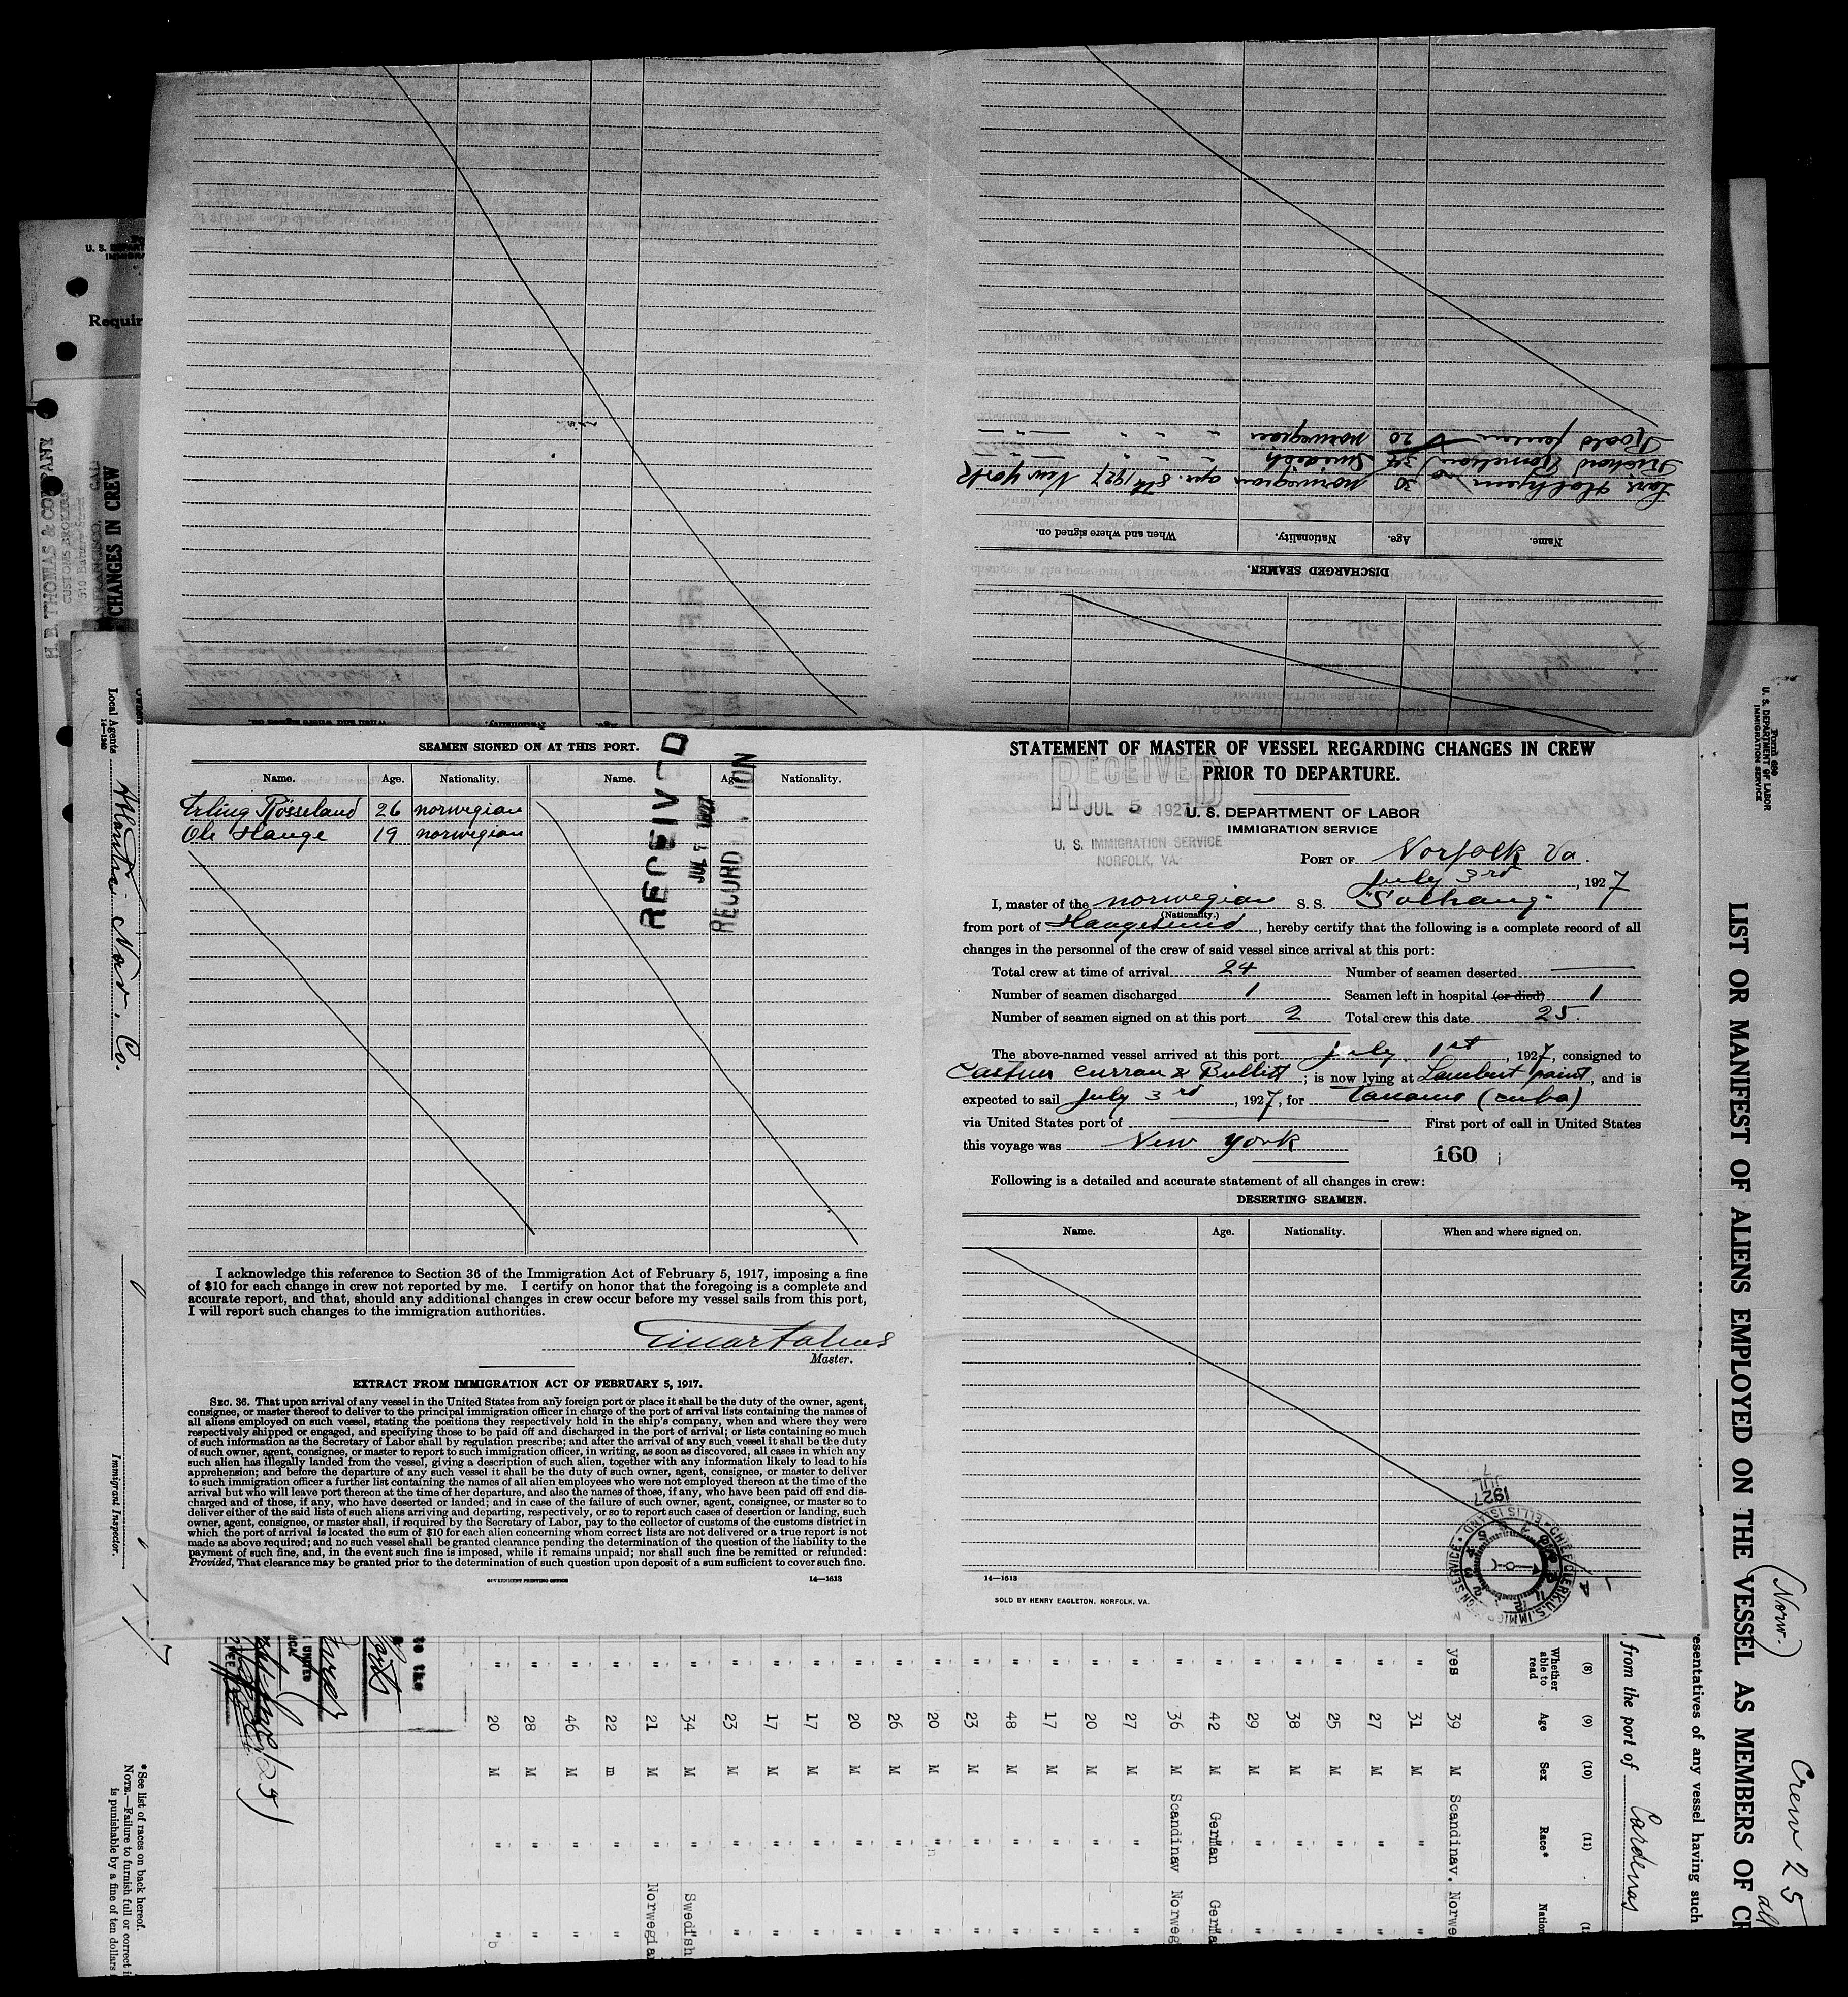 DISCHARGED SEAMEN.
Name. Age. Nationality. When and where signed on.
30 norwegian apr. 8th 1927 New York
Richard 34 Swedish " " " "
Roald Jensen 20 norwegian " " " "
SEAMEN SIGNED ON AT THIS PORT.
Name. Age. Nationality. Name. Age. Nationality.
Erling Rösseland 26 norwegian
Ole Hauge 19 norwegian
RECEIVED
JUL 1927
RECORD
I acknowledge this reference to Section 36 of the Immigration Act of February 5, 1917, imposing a fine
of $10 for each change in crew not reported by me. I certify on honor that the foregoing is a complete and
accurate report, and that, should any additional changes in crew occur before my vessel sails from this port,
I will report such changes to the immigration authorities.
Master.
EXTRACT FROM IMMIGRATION ACT OF FEBRUARY 5, 1917.
SEC. 36. That upon arrival of any vessel in the United States from any foreign port or place it shall be the duty of the owner, agent,
consignee, or master thereof to deliver to the principal immigration officer in charge of the port of arrival lists containing the names of
all aliens employed on such vessel, stating the positions they respectively hold in the ship's company, when and where they were
respectively shipped or engaged, and specifying those to be paid off and discharged in the port of arrival; or lists containing so much
of such information as the Secretary of Labor shall by regulation prescribe; and after the arrival of any such vessel it shall be the duty
of such owner, agent, consignee, or master to report to such immigration officer, in writing, as soon as discovered, all cases in which any
such alien has illegally landed from the vessel, giving a description of such alien, together with any information likely to lead to his
apprehension; and before the departure of any such vessel it shall be the duty of such owner, agent, consignee, or master to deliver
to such immigration officer a further list containing the names of all alien employees who were not employed thereon at the time of the
arrival but who will leave port thereon at the time of her departure, and also the names of those, if any, who have been paid off and dis-
charged and of those, if any, who have deserted or landed; and in case of the failure of such owner, agent, consignee, or master so to
deliver either of the said lists of such aliens arriving and departing, respectively, or so to report such cases of desertion or landing, such
owner, agent, consignee, or master shall, if required by the Secretary of Labor, pay to the collector of customs of the customs district in
which the port of arrival is located the sum of $10 for each alien concerning whom correct lists are not delivered or a true report is not
made as above required; and no such vessel shall be granted clearance pending the determination of the question of the liability to the
payment of such fine, and, in the event such fine is imposed, while it remains unpaid; nor shall such fine be remitted or refunded:
Provided, That clearance may be granted prior to the determination of such question upon deposit of a sum sufficient to cover such fine.
GOVERNMENT PRINTING OFFICE 14—1613
STATEMENT OF MASTER OF VESSEL REGARDING CHANGES IN CREW
PRIOR TO DEPARTURE.
RECEIVED
JUL 5 1927
U. S. IMMIGRATION SERVICE
NORFOLK, VA.
U. S. DEPARTMENT OF LABOR
IMMIGRATION SERVICE
PORT OF Norfolk Va.
July 3rd, 1927
I, master of the norwegian S. S. "Solhaug"
(Nationality.)
from port of Haugesund, hereby certify that the following is a complete record of all
changes in the personnel of the crew of said vessel since arrival at this port:
Total crew at time of arrival 24 Number of seamen deserted —
Number of seamen discharged 1 Seamen left in hospital (or died) 1
Number of seamen signed on at this port 2 Total crew this date 25.
The above-named vessel arrived at this port July 1st, 1927, consigned to
Castner Curran & Bullitt; is now lying at Lambert point, and is
expected to sail July 3rd, 1927, for Tanamo (Cuba)
via United States port of First port of call in United States
this voyage was New York
160
Following is a detailed and accurate statement of all changes in crew:
DESERTING SEAMEN.
Name. Age. Nationality. When and where signed on.
JUL 7 1927
14—1613
SOLD BY HENRY EAGLETON, NORFOLK, VA.
H. B. THOMAS & COMPANY
CUSTOMS BROKERS
510 Battery Street
CHANGES IN CREW
Requir
Local Agents Atlantic Nav. Co.
14—1240
Immigrant Inspector.
* See list of races on back hereof.
NOTE.—Failure to furnish full or correct
is punishable by a fine of ten dollars
Form 680
U. S. DEPARTMENT OF LABOR
IMMIGRATION SERVICE
LIST OR MANIFEST OF ALIENS EMPLOYED ON THE VESSEL AS MEMBERS OF CR
(Norw.)
Crew 25
all
esentatives of any vessel having such
from the port of Cardenas
(8) (9) (10) (11)
Whether able to read Age Sex Race* Nation
yes 39 M Scandinav. Norwe
" 31 M " "
" 27 M " "
" 25 M " "
" 38 M " "
" 29 M " "
" 42 M German Germa
" 36 M Scandinav Norweg
" 27 M " "
" 20 M " "
" 17 M " "
" 48 M " "
" 23 M " "
" 20 M " "
" 26 M " "
" 20 M " "
" 17 M " "
" 17 M " "
" 23 M " "
" 34 M " Swedish
" 21 M " Norwegia
" 22 m " "
" 46 M " "
" 28 M " "
" 20 M " "
to the